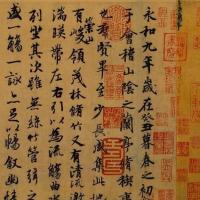 永和九年歲在癸丑暮春之初
于會稽山陰之蘭亭脩稧事
也羣賢畢至少長咸集此地
有崇山峻領茂林脩竹又有清流激
湍暎帶左右引以為流觴曲水
列坐其次雖無絲竹管弦之
盛一觴一詠亦足以暢敘幽情